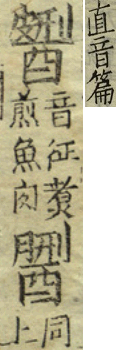 直音篇
音征煑
煎魚肉
同
上